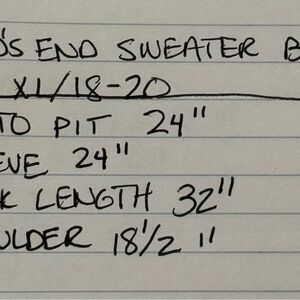 'S END SWEATER B
X1/18-20
TO PIT 24"
EVE 24"
K LENGTH 32"
ULDER 18 1/2 "